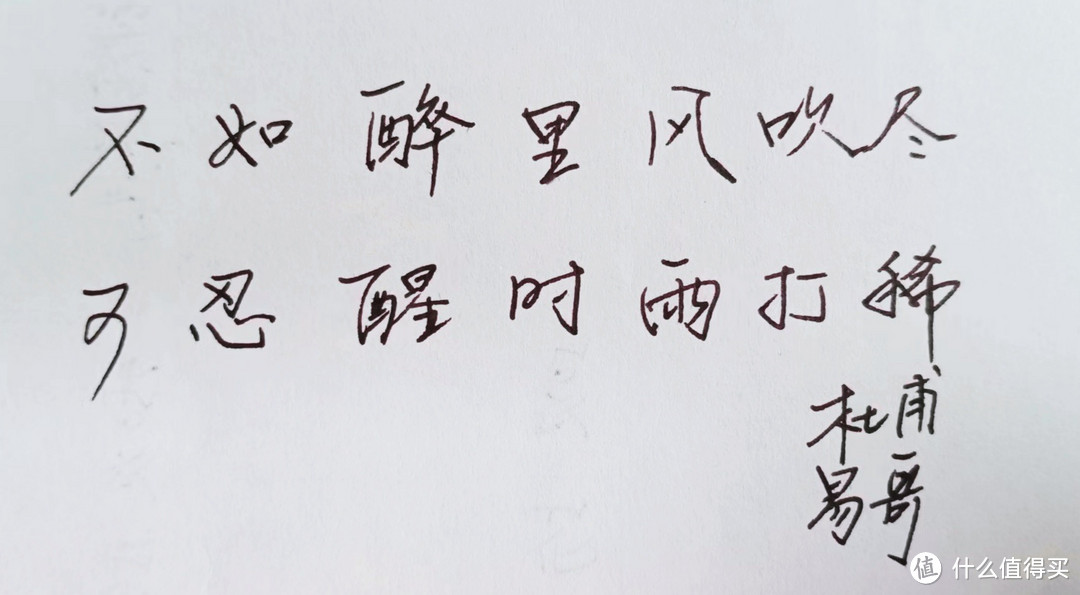 不如醉里风吹尽
可忍醒时雨打稀
杜甫
易哥
值 什么值得买